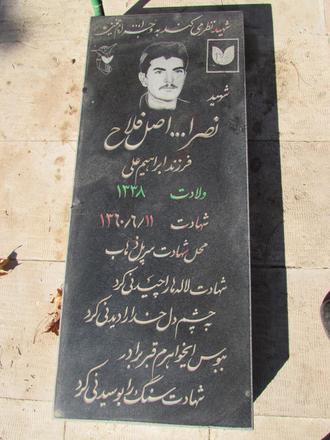 شهید نظر می کند به وجه الله
شهید
نصرا... اصل فلاح
فرزند ابراهیم علی
ولادت ۱۳۳۸
شهادت ۱۳۶۰/۶/۱۱
محل شهادت سرپل ذهاب
شهادت لاله ها را چیدنی کرد
چشم دل خدا را دیدنی کرد
ببوس ای خواهرم قبر برادر
شهادت سنگ را بوسیدنی کرد